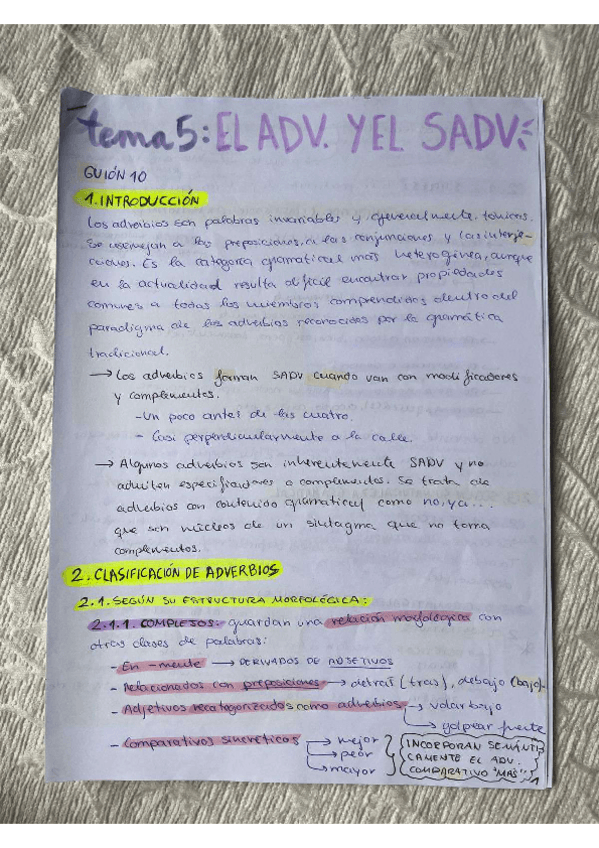 tema 5: EL ADV. Y EL SADV.
GUIÓN 10
1. INTRODUCCIÓN
Los adverbios son palabras invariables y generalmente, tónicas.
Se asemejan a las preposiciones, a las conjunciones y las interje-
cciones. Es la categoría gramatical más heterogénea, aunque
en la actualidad resulta difícil encontrar propiedades
comunes a todos los miembros comprendidos dentro del
paradigma de los adverbios reconocidos por la gramática
tradicional.
→ Los adverbios forman SADV cuando van con modificadores
y complementos.
- Un poco antes de las cuatro.
- Casi perpendicularmente a la calle.
→ Algunos adverbios son inherentemente SADV y no
admiten especificadores o complementos. Se trata de
adverbios con contenido gramatical como no, ya...
que son núcleos de un sintagma que no toma
complementos.
2. CLASIFICACIÓN DE ADVERBIOS
2.1. SEGÚN SU ESTRUCTURA MORFOLÓGICA:
2.1.1. COMPLEJOS: guardan una relación morfológica con
otras clases de palabras:
- En -mente → DERIVADOS DE ADJETIVOS
- Relacionados con preposiciones → detrás (tras), debajo (bajo).
- Adjetivos recategorizados como adverbios → volar bajo
→ golpear fuerte
- Comparativos sincréticos → mejor
→ peor
→ mayor
INCORPORAN SEMÁNTI
CAMENTE EL ADV.
COMPARATIVO "MÁS".
1